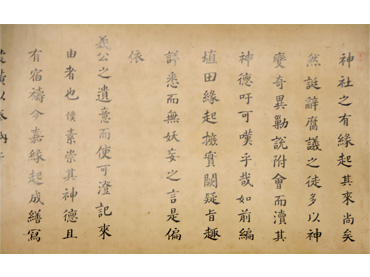 神社之有縁起其来尚矣
然誕辞腐議之徒多以神
變奇異勦説附會而瀆其
神徳吁可嘆乎哉如前編
埴田縁起摭實闕疑旨趣
詳悉而無妖妄之言是偏
依
義公之遺意而使可澄記来
由者也僕素崇其神徳且
有宿禱今嘉縁起成繕冩